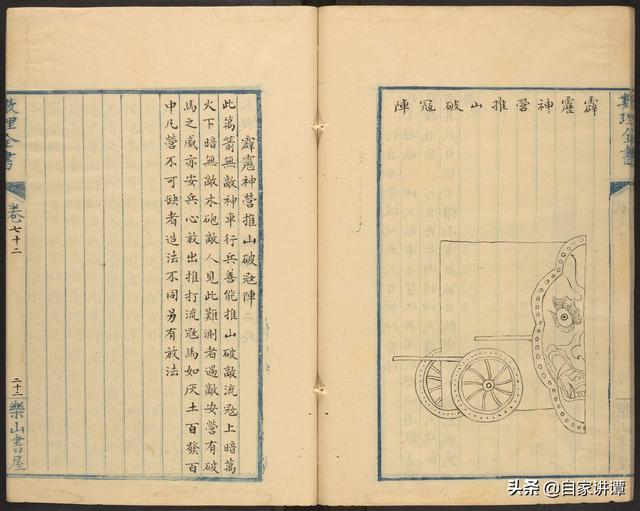 霹靂神營推山破冦陣
數理全書
霹靂神營推山破冦陣
此萬箭無敵神車行兵善能推山破敵流冦上暗萬
火下暗無敵木砲敵人見此難測者遇敵安營有破
馬之威亦安兵心放出推打流冦馬如灰土百發百
中凡營不可缺者造法不同另有放法
數理全書
卷七十二
二十二
樂山書屋
头条 @自家讲谭